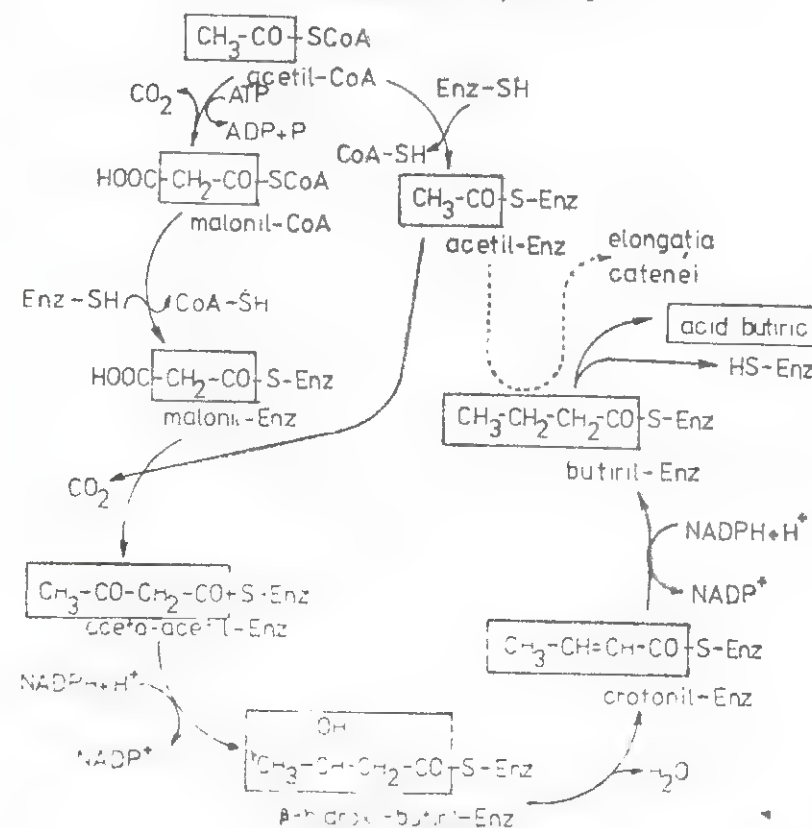 CH3-CO-SCoA
acetil-CoA
CO2
ATP
ADP+P
Enz-SH
CoA-SH
HOOC-CH2-CO-SCoA
malonil-CoA
CH3-CO-S-Enz
acetil-Enz
elongația
catenei
Enz-SH
CoA-SH
acid butiric
HS-Enz
HOOC-CH2-CO-S-Enz
malonil-Enz
CH3-CH2-CH2-CO-S-Enz
butiril-Enz
CO2
NADPH+H+
NADP+
CH3-CO-CH2-CO-S-Enz
aceto-acetil-Enz
CH3-CH=CH-CO-S-Enz
crotonil-Enz
NADPH+H+
NADP+
OH
CH3-CH-CH2-CO-S-Enz
H2O
β-hidroxi-butiril-Enz